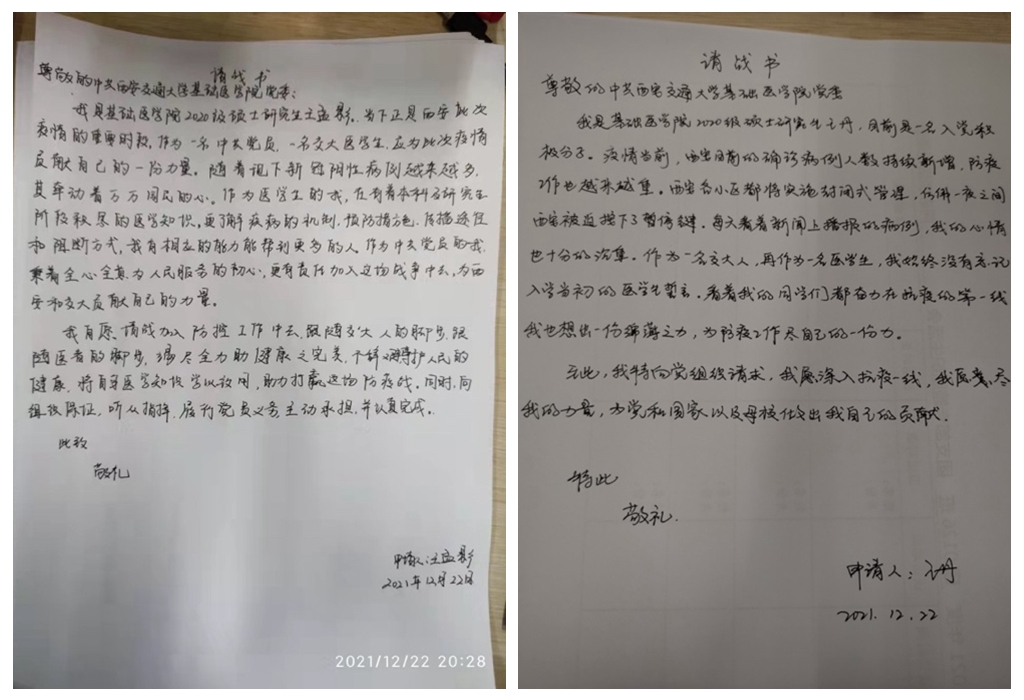 请战书
尊敬的中共西安交通大学基础医学院党委：
我是基础医学院2020级硕士研究生 当下正是西安此次
疫情的重要时段，作为一名中共党员，一名交大医学生，应为此次疫情
贡献自己的一份力量。随着现下新冠阳性病例越来越多，
其牵动着万万国民的心。作为医学生的我，在有着本科与研究生
阶段积累的医学知识，更了解疾病的机制，预防措施，传播途径
和阻断方式，我有相应的能力能帮到更多的人。作为中共党员的我，
秉着全心全意为人民服务的初心，更有责任加入这场战争中去，为西
安和交大贡献自己的力量。
我自愿请战加入防控工作中去，跟随交大人的脚步，跟
随医者的脚步，竭尽全力助健康之完美，人民的
健康，将自身医学知识学以致用，助力打赢这场防疫战。同时，向
组织保证，听从指挥，履行党员义务主动承担，并认真完成。
此致
敬礼
申请人：
2021年12月22日
2021/12/22 20:28
请战书
尊敬的中共西安交通大学基础医学院党委
我是基础医学院2020级硕士研究生王丹，目前是一名入党积
极分子。疫情当前，西安目前的确诊病例人数持续新增，防疫
工作也越来越重。西安各小区都将实施封闭式管理，仿佛一夜之间
西安被迫按下了暂停键。每天看着新闻上播报的病例，我的心情
也十分的沉重。作为一名交大人，再作为一名医学生，我始终没有忘记
入学当初的医学生誓言。看着我的同学们都奋力在抗疫的第一线
我也想出一份绵薄之力，为防疫工作尽自己的一份力。
至此，我特向党组织请求，我愿深入抗疫一线，我愿意尽
我的力量，为党和国家以及母校做出我自己的贡献。
特此
敬礼.
申请人：王丹
2021.12.22